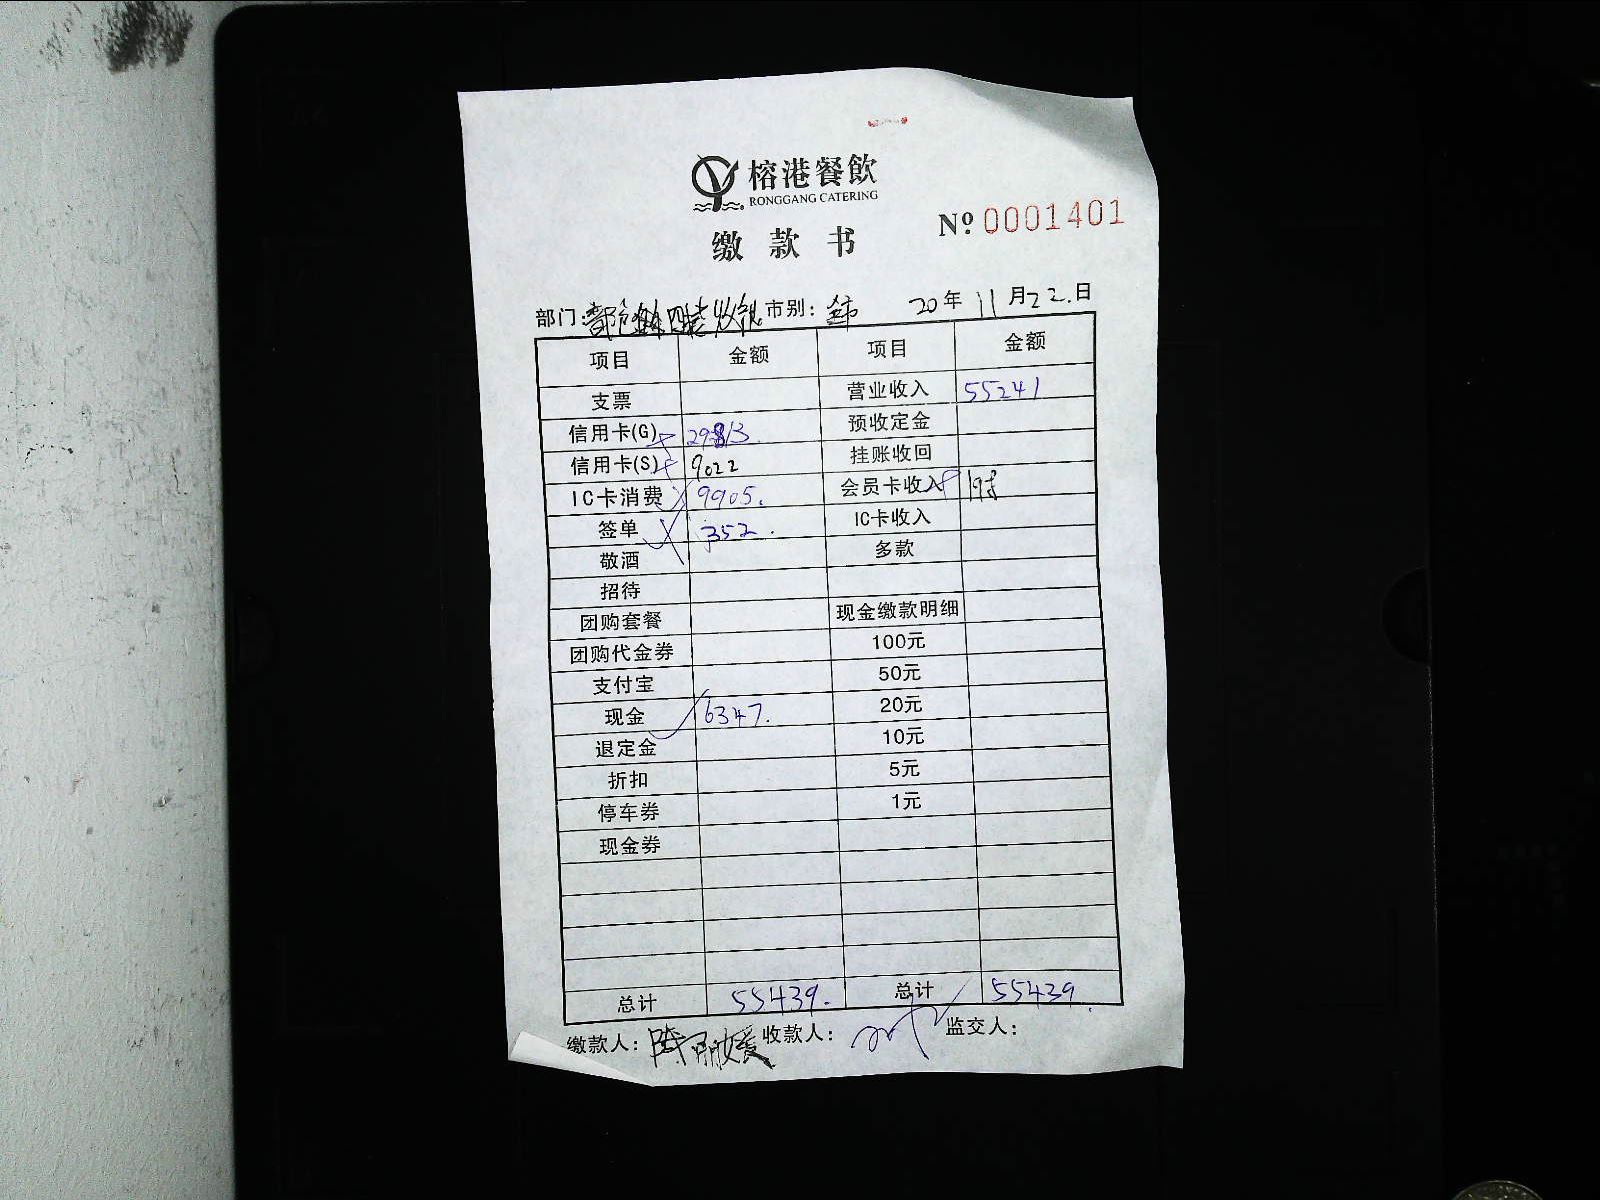 榕港餐飲
RONGGANG CATERING
№ 0001401
缴款书
部门: 市别: 全市 20年 11月 22.日
项目 金额 项目 金额
支票 营业收入 55241
信用卡(G) 29813. 预收定金
信用卡(S) 9022 挂账收回
IC卡消费 9905. 会员卡收入 198
签单 352. IC卡收入
敬酒 多款
招待
团购套餐 现金缴款明细
团购代金券 100元
支付宝 50元
现金 6347. 20元
退定金 10元
折扣 5元
停车券 1元
现金券
总计 55439. 总计 55439.
缴款人: 陈丽媛 收款人: 监交人: